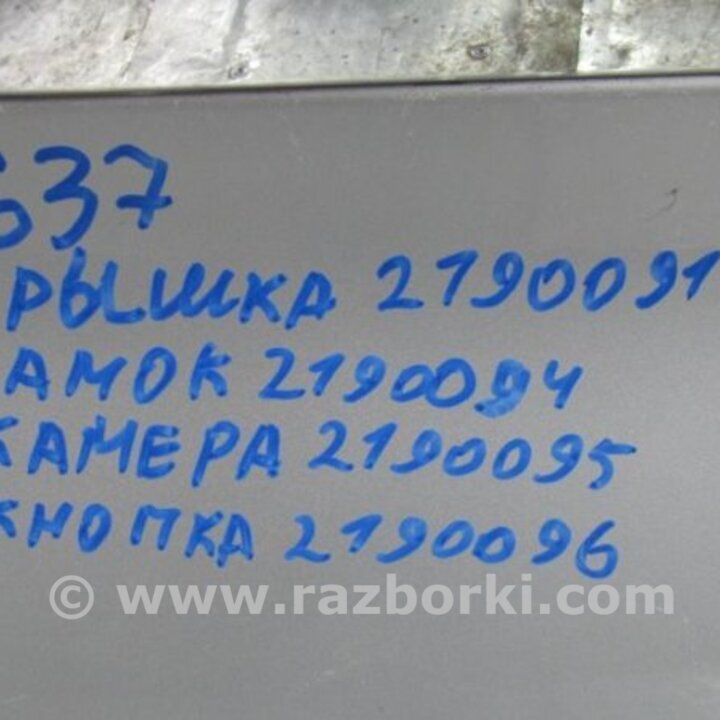 637
КРЫШКА 2190091
ЗАМОК 2190094
КАМЕРА 2190095
КНОПКА 2190096
© www.razborki.com